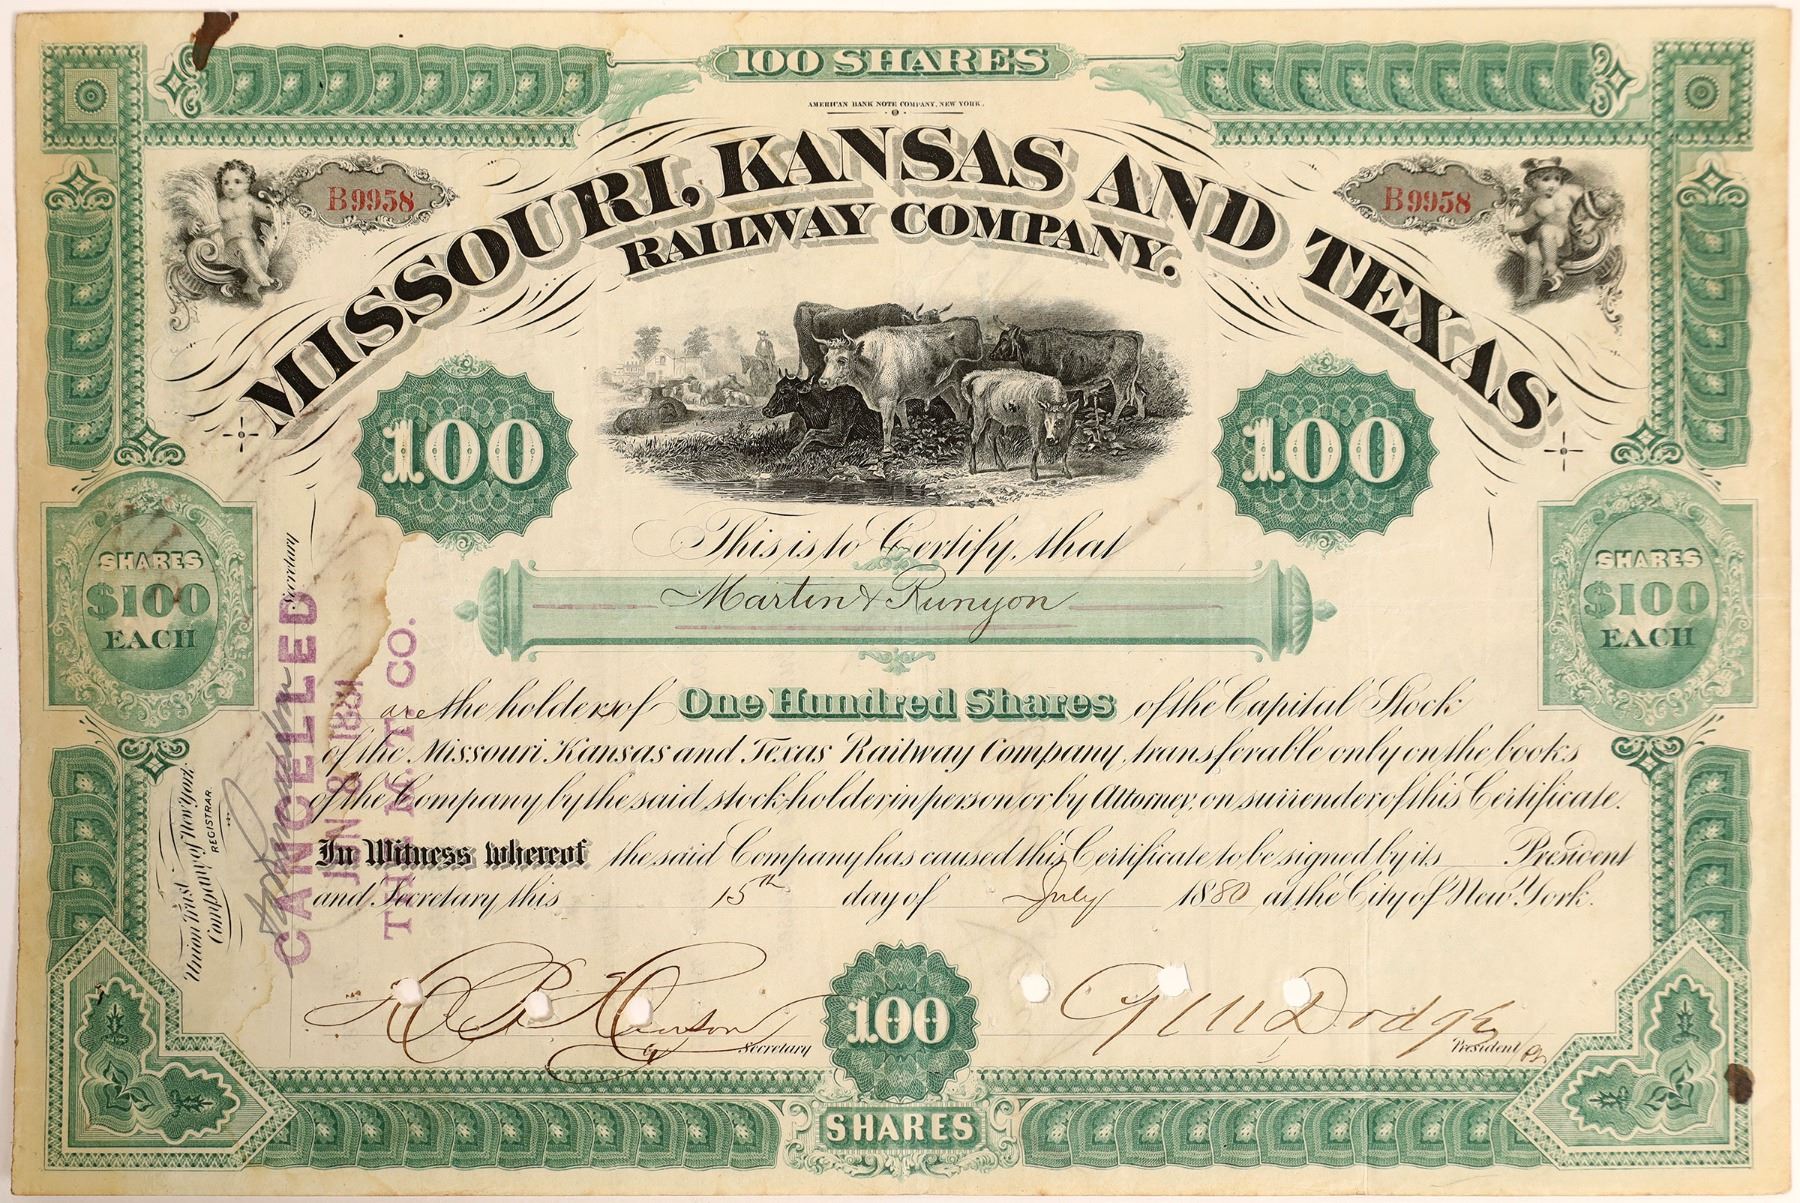 100 SHARES
AMERICAN BANK NOTE COMPANY, NEW YORK.
B9958
B9958
MISSOURI, KANSAS AND TEXAS
RAILWAY COMPANY.
100
100
This is to Certify, that
Martin & Runyon
SHARES
$100
EACH
SHARES
$100
EACH
are the holders of One Hundred Shares of the Capital Stock
of the Missouri Kansas and Texas Railway Company, transferable only on the books
of the Company by the said stockholder in person or by Attorney, on surrender of this Certificate.
In Witness whereof the said Company has caused this Certificate to be signed by its President
and Secretary this 15th day of July 1880 at the City of New York.
Secretary
Union Trust
Company of New York.
REGISTRAR.
CANCELLED
JUN 8 1881
THE M. T. CO.
Secretary
100
SHARES
G M Dodge
President